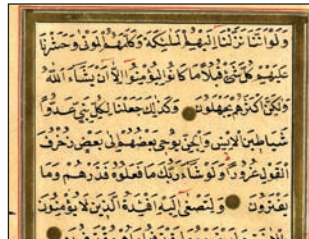 ولو اننا نزلنا اليهم الملئكة وكلمهم الموتى وحشرنا
عليهم كل شئ قبلا ما كانوا ليؤمنوا الا ان يشاء الله
ولكن اكثرهم يجهلون وكذلك جعلنا لكل نبي عدوا
شياطين الانس والجن يوحى بعضهم الى بعض زخرف
القول غرورا ولو شاء ربك ما فعلوه فذرهم وما
يفترون ولتصغى اليه افئدة الذين لا يؤمنون